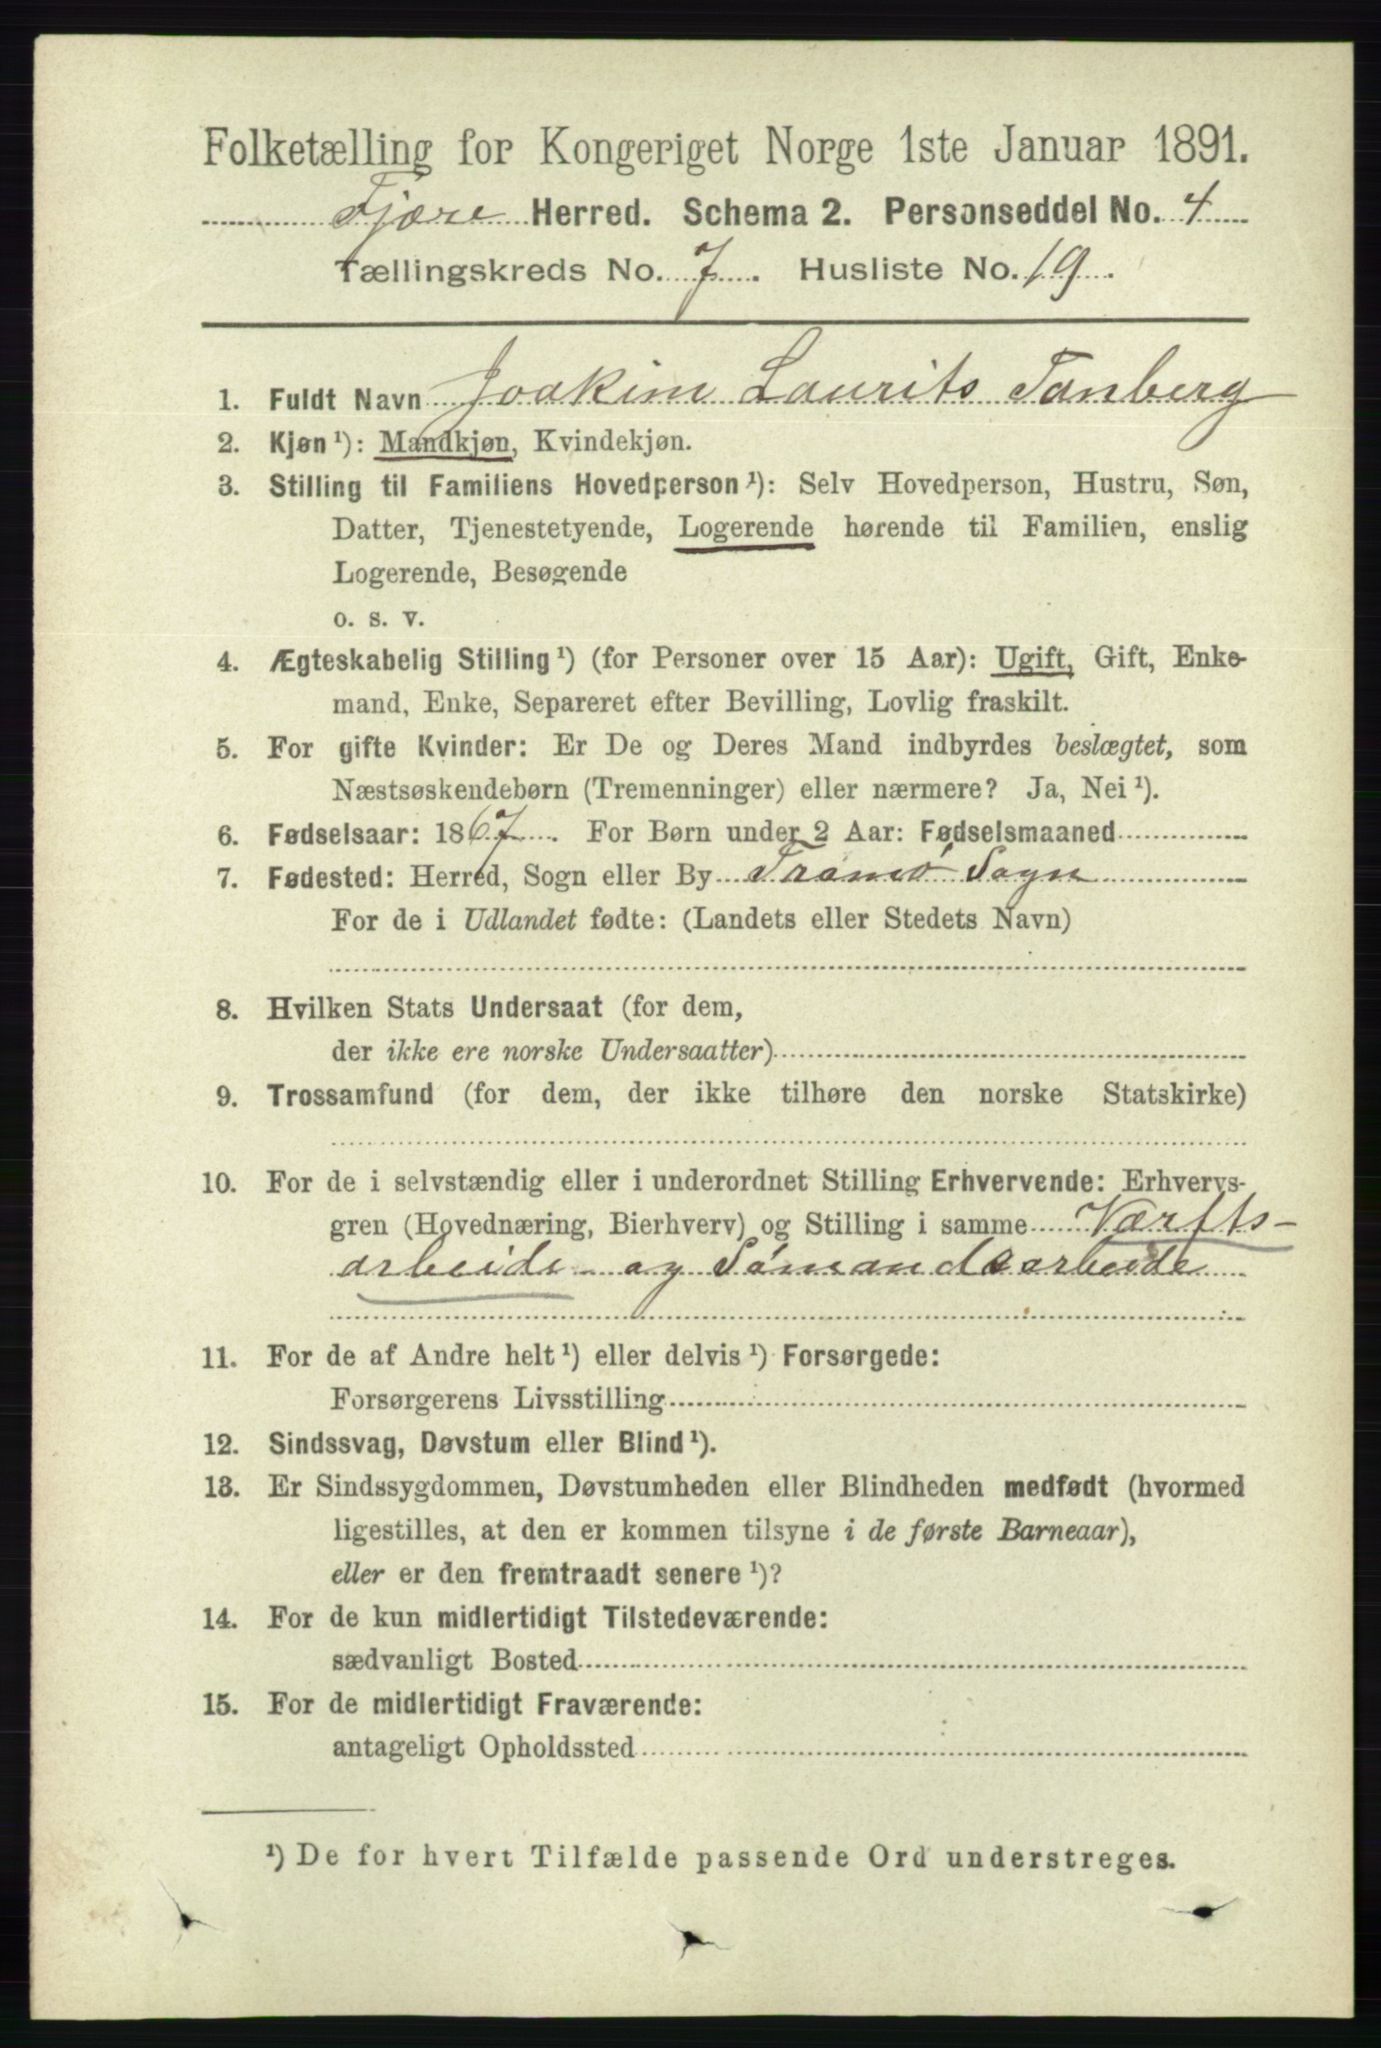 Folketælling for Kongeriget Norge 1ste Januar 1891.
Fjære Herred. Schema 2. Personseddel No. 4
Tællingskreds No. 7. Husliste No. 19.
1. Fuldt Navn Joakim Laurits Tanberg
2. Kjøn ¹): Mandkjøn, Kvindekjøn.
3. Stilling til Familiens Hovedperson ¹): Selv Hovedperson, Hustru, Søn,
Datter, Tjenestetyende, Logerende hørende til Familien, enslig
Logerende, Besøgende
o. s. v.
4. Ægteskabelig Stilling ¹) (for Personer over 15 Aar): Ugift, Gift, Enke-
mand, Enke, Separeret efter Bevilling, Lovlig fraskilt.
5. For gifte Kvinder: Er De og Deres Mand indbyrdes beslægtet, som
Næstsøskendebørn (Tremenninger) eller nærmere? Ja, Nei ¹).
6. Fødselsaar: 1867. For Børn under 2 Aar: Fødselsmaaned
7. Fødested: Herred, Sogn eller By Tromø Sogn
For de i Udlandet fødte: (Landets eller Stedets Navn)
8. Hvilken Stats Undersaat (for dem,
der ikke ere norske Undersaatter)
9. Trossamfund (for dem, der ikke tilhøre den norske Statskirke)
10. For de i selvstændig eller i underordnet Stilling Erhvervende: Erhvervs-
gren (Hovednæring, Bierhverv) og Stilling i samme Værfts-
arbeide og Sömandsarbeide
11. For de af Andre helt ¹) eller delvis ¹) Forsørgede:
Forsørgerens Livsstilling
12. Sindssvag, Døvstum eller Blind ¹).
13. Er Sindssygdommen, Døvstumheden eller Blindheden medfødt (hvormed
ligestilles, at den er kommen tilsyne i de første Barneaar),
eller er den fremtraadt senere ¹)?
14. For de kun midlertidigt Tilstedeværende:
sædvanligt Bosted
15. For de midlertidigt Fraværende:
antageligt Opholdssted
¹) De for hvert Tilfælde passende Ord understreges.